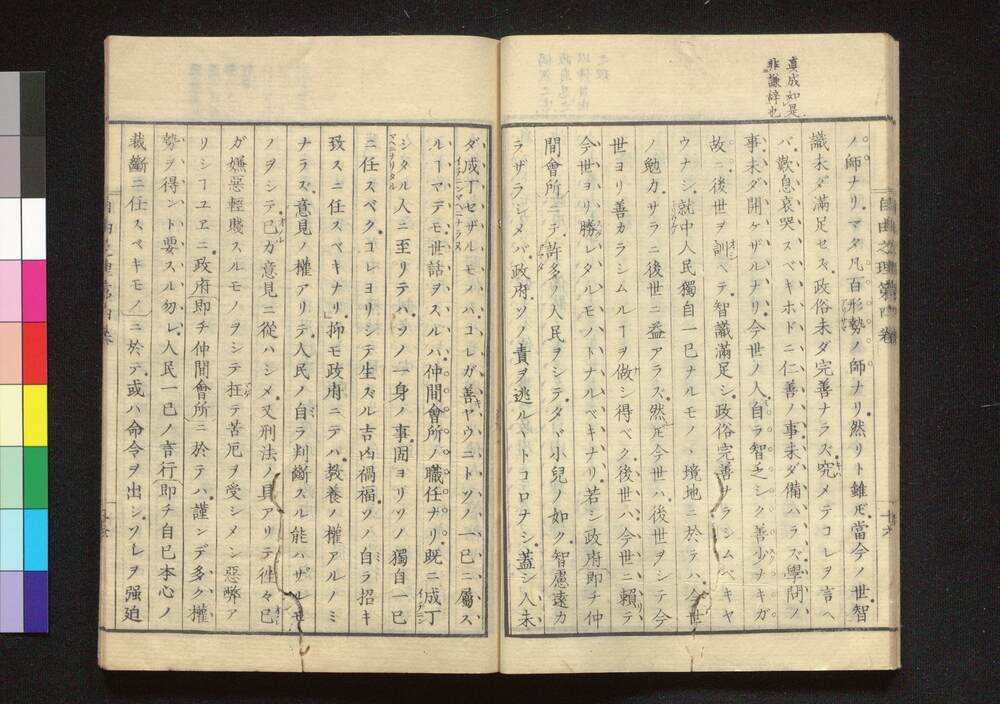 眞成如是
非謙辭也
ノ師ナリ。マタ凡百形勢ノ師ナリ。然リト雖𪜈。當今ノ世。智
識未ダ滿足セズ。政俗未ダ完善ナラズ。究メテコレヲ言ヘ
バ。歎息哀哭スベキホドニ。仁善ノ事未ダ備ハラズ。學問ノ
事未ダ開ケザルナリ。今世ノ人。自ラ智乏シク善少ナキガ
故ニ。後世ヲ訓ヘテ。智識滿足シ。政俗完善ナラシムベキヤ
ウナシ。就中人民獨自一已ナルモノヽ境地ニ於テハ。今世
ノ勉力。サラニ後世ニ益アラズ。然𪜈今世ハ。後世ヲシテ今
世ヨリ善カラシムルヿヲ做シ得ベク。後世ハ。今世ニ賴リテ
今世ヨリ勝レタルモノトナルベキナリ。若シ政府即チ仲
間會所ニテ。許多ノ人民ヲシテ。タヾ小兒ノ如ク。智慮遠カ
ラザラシメバ。政府ソノ責ヲ逃ルヽトコロナシ。蓋シ人未
ダ成丁セザルモノハ。コレガ善キヤウニトソノ一已ニ屬ス
ルヿマデモ。世話ヲスルハ。仲間會所ノ職任ナリ。既ニ成丁
シタル人ニ至リテハ。ソノ一身ノ事。固ヨリソノ獨自一已
ニ任スベク。コレヨリシテ生ズル吉凶禍福。ソノ自ラ招キ
致スニ任スベキナリ。抑モ政府ニテハ。教養ノ權アルノミ
ナラズ。意見ノ權アリテ。人民ノ自ラ判斷スル能ハザルモ
ノヲシテ。己ガ意見ニ從ハシメ。又刑法ノ具アリテ。徃々已
ガ嫌惡輕賤スルモノヲシテ。枉テ苦厄ヲ受シメン惡弊ア
リシヿユヱニ。政府即チ仲間會所ニ於テハ。謹ンデ多ク權
勢ヲ得ント要スル勿レ。人民一已ノ言行即チ自已本心ノ
裁斷ニ任スベキモノニ於テ。或ハ命令ヲ出シ。ソレヲ强迫